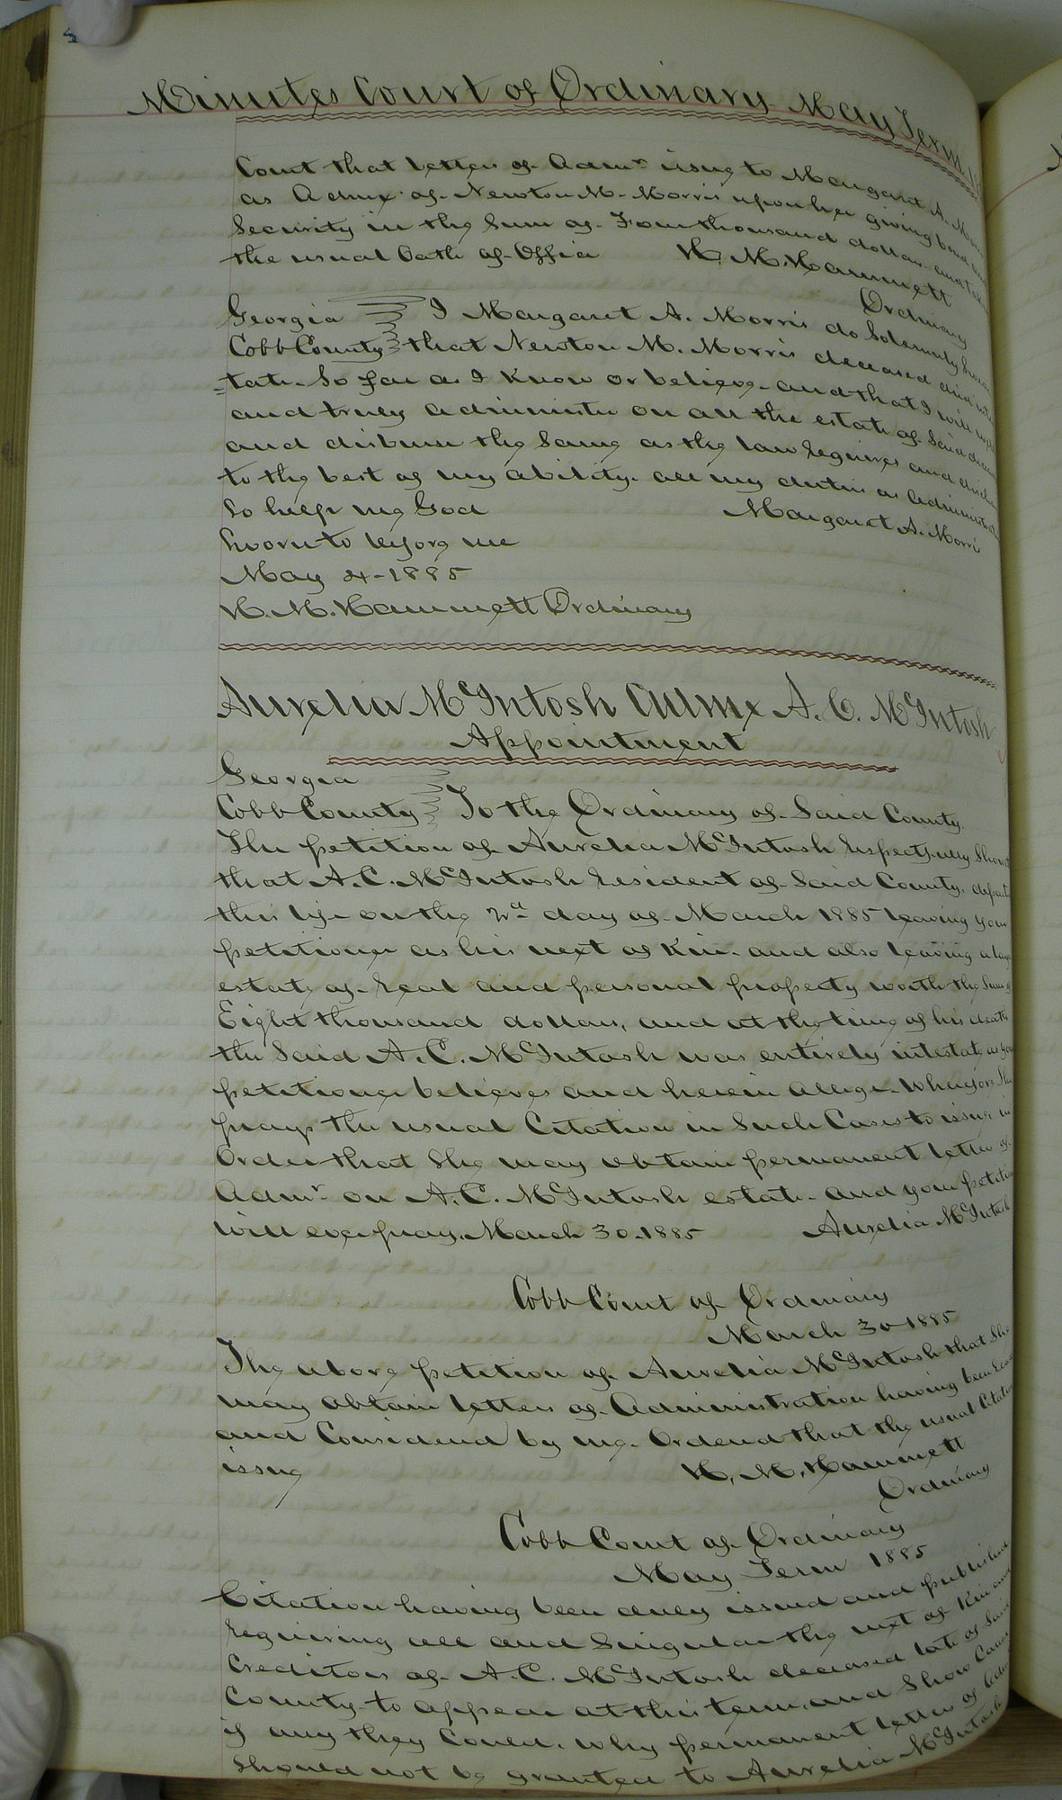 Minutes Court of Ordinary May Term
Court that letters of Admr issue to Margaret A. Morris
as Admx of Newton M. Morris upon her giving bond and
Security in the Sum of Four thousand dollars and
the usual Oath of Office H. M. Hammett
Ordinary
Georgia I Margaret A. Morris do Solemnly Swear
Cobb County that Newton M. Morris deceased died
tate So far as I Know or believe and that I will
and truly administer on all the estate of Said
and disburse the Same as the law requires and
to the best of my ability all my duties as
So help me God Margaret A. Morris
Sworn to before me
May 4-1885
H. M. Hammett Ordinary
Aurelia McIntosh Admx A. C. McIntosh
Appointment
Georgia
Cobb County To the Ordinary of Said County
The petition of Aurelia McIntosh Respectfully Shows
that A. C. McIntosh Resident of Said County,
this life on the 2nd day of March 1885 leaving your
petitioner as his next of Kin and also leaving a
estate of Real and personal property worth the Sum of
Eight thousand dollars, and at the time of his death
the Said A. C. McIntosh was entirely intestate as your
petitioner believes and herein alleges Wherefore She
prays the usual Citation in Such Cases to issue in
Order that She may obtain permanent letters of
Admr on A. C. McIntosh estate and your
will ever pray. March 30. 1885 Aurelia McIntosh
Cobb Court of Ordinary
March 30 1885
The above petition of Aurelia McIntosh that She
may obtain letters of Administration having been
and Considered by me. Ordered that the usual Citation
issue H. M. Hammett
Ordinary
Cobb Court of Ordinary
May Term 1885
Citation having been duly issued and published
Requiring all and Singular the next of Kin and
Creditors of A. C. McIntosh deceased late of Said
County to appear at this term, and Show Cause
if any they Could. Why permanent letters of
Should not be granted to Aurelia McIntosh